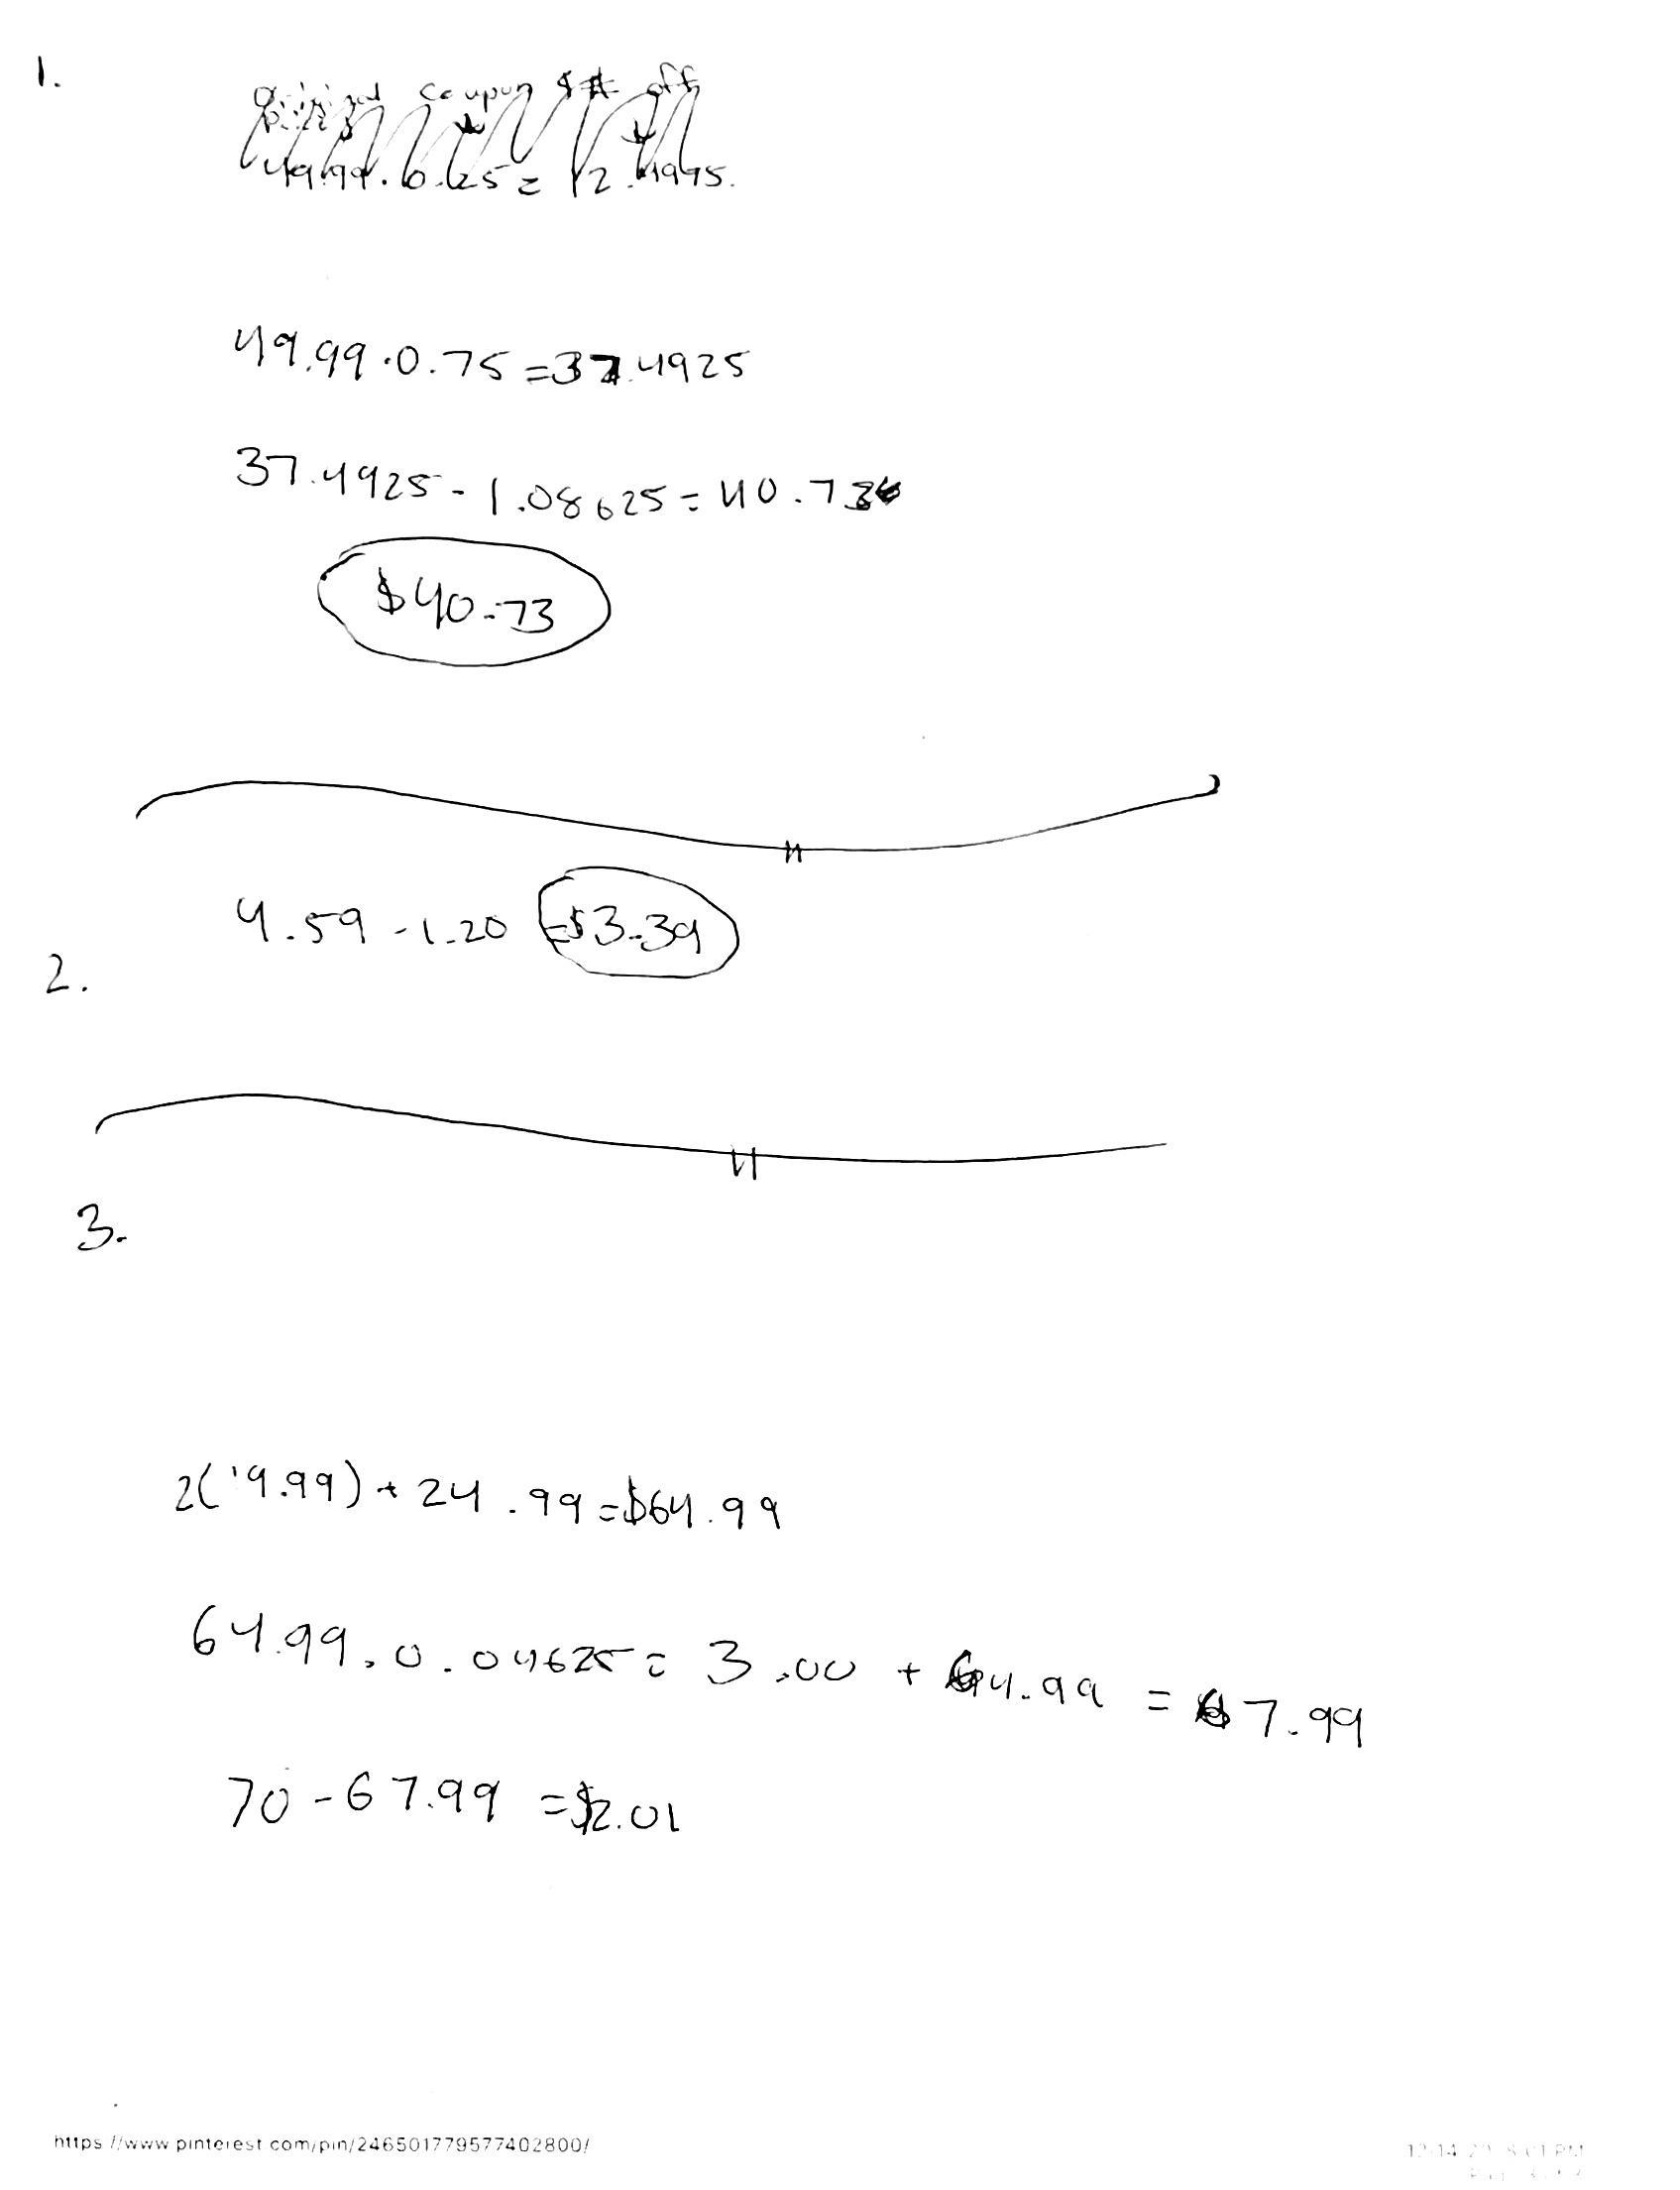 1.
Original coupon $ off
price
49.99 · 0.25 = 12.4995.
49.99 · 0.75 = 37.4925
37.4925 - 1.08625 = 40.73
$40.73
4.59 - 1.20 = $3.39
2.
3.
2(19.99) + 24.99 = $64.99
64.99 . 0.04625 = 3.00 + 64.99 = 67.99
70 - 67.99 = $2.01
https://www.pinterest.com/pin/246501779577402800/